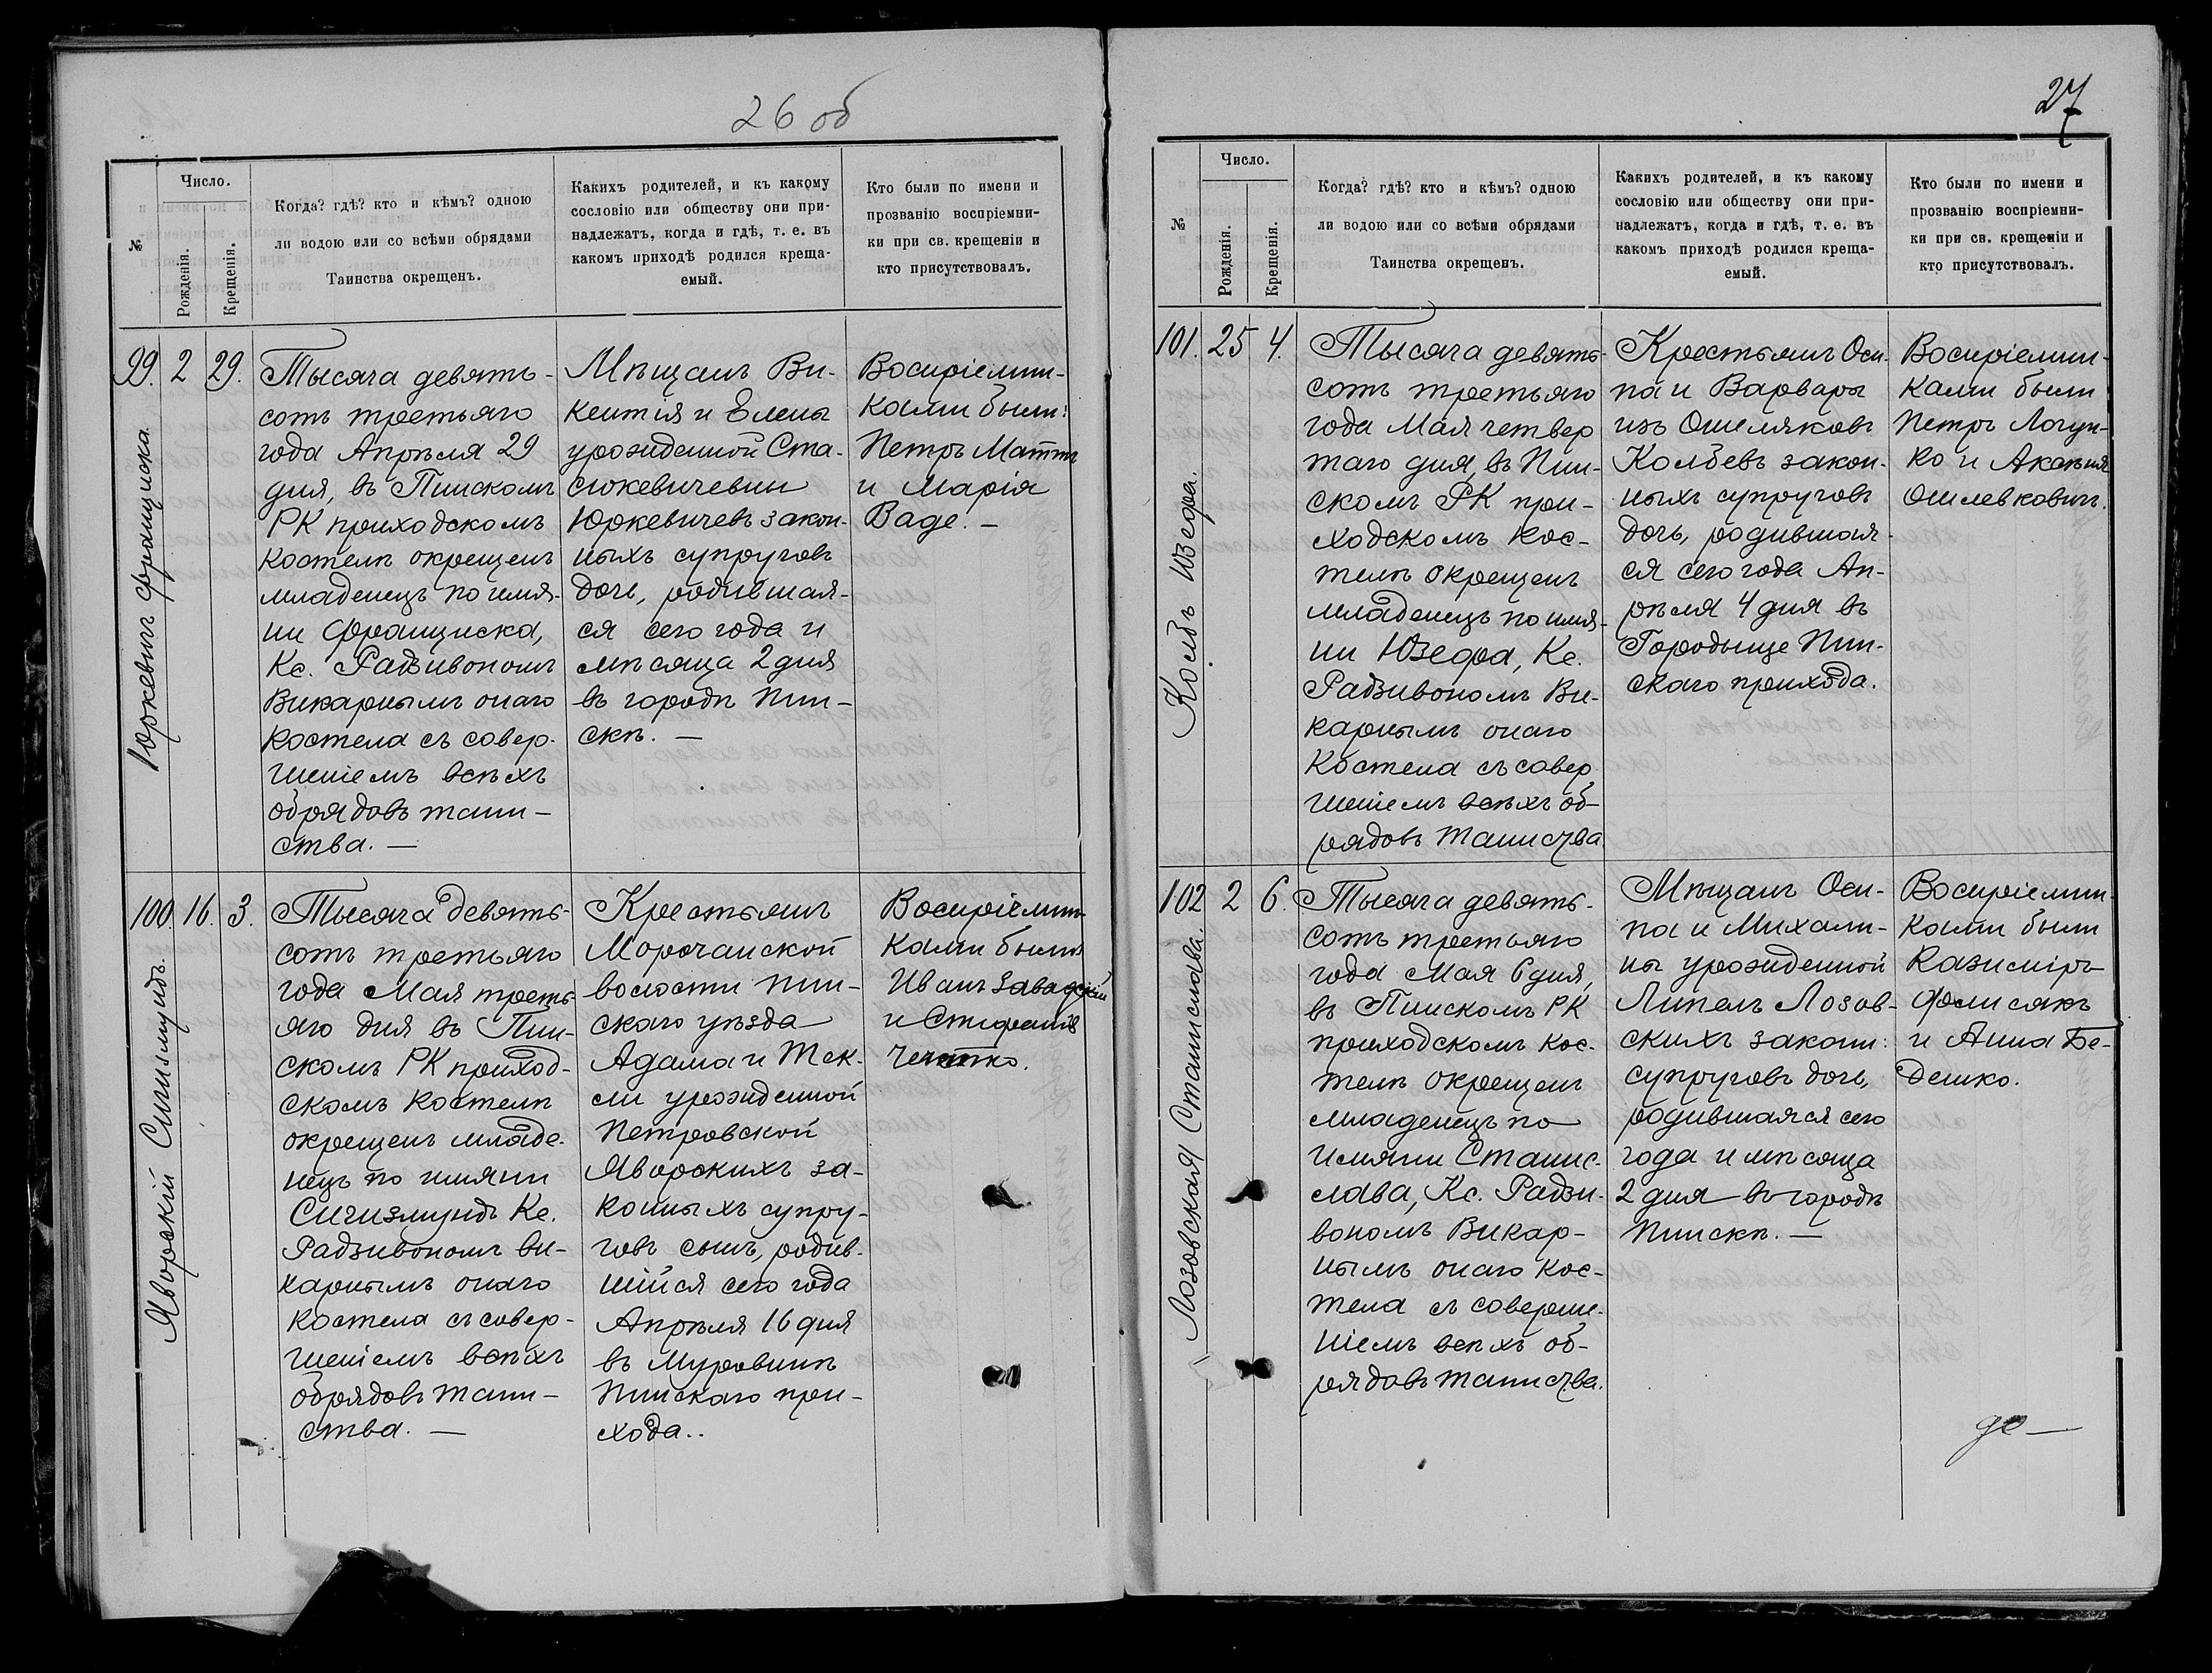 26 об
№
Число.
Рожденія.
Крещенія.
Когда? гдѣ? кто и кѣмъ? одною
ли водою или со всѣми обрядами
Таинства окрещенъ.
Какихъ родителей, и къ какому
сословію или обществу они при-
надлежатъ, когда и гдѣ, т. е. въ
какомъ приходѣ родился креща-
емый.
Кто были по имени и
прозванію воспріемни-
ки при св. крещеніи и
кто присутствовалъ.
99. 2 29.
Юркевичъ Франциска.
Тысяча девять-
сотъ третьяго
года Апрѣля 29
дня, въ Пинскомъ
РК приходскомъ
костелѣ окрещенъ
младенецъ по имя-
ни Франциска,
Кс. Радзивономъ
Викарнымъ онаго
костела съ совер-
шеніемъ всѣхъ
обрядовъ таин-
ства. —
Мѣщанъ Ви-
кентія и Елены
урожденной Ста-
сюкевичевны
Юркевичевъ закон-
ныхъ супруговъ
дочь, родившая-
ся сего года и
мѣсяца 2 дня
въ городѣ Пин-
скѣ. —
Воспріемни-
ками были:
Петръ
и Марія
Ваде. —
100. 16. 3.
Яворскій Сигизмундъ.
Тысяча девять-
сотъ третьяго
года Мая треть-
яго дня въ Пин-
скомъ РК приход-
скомъ костелѣ
окрещенъ младе-
нецъ по имяни
Сигизмундъ Кс.
Радзивономъ ви-
карнымъ онаго
костела съ совер-
шеніемъ всѣхъ
обрядовъ таин-
ства. —
Крестьянъ
Морочанской
волости Пин-
скаго уѣзда
Адама и Тек-
ли урожденной
Петровской
Яворскихъ за-
конныхъ супру-
говъ сынъ, родив-
шійся сего года
Апрѣля 16 дня
въ Муровинѣ
Пинскаго при-
хода..
Воспріемни-
ками были
Иванъ Завадскій
и Стефанія
27
№
Число.
Рожденія.
Крещенія.
Когда? гдѣ? кто и кѣмъ? одною
ли водою или со всѣми обрядами
Таинства окрещенъ.
Какихъ родителей, и къ какому
сословію или обществу они при-
надлежатъ, когда и гдѣ, т. е. въ
какомъ приходѣ родился креща-
емый.
Кто были по имени и
прозванію воспріемни-
ки при св. крещеніи и
кто присутствовалъ.
101. 25 4.
Колбъ Юзефа.
Тысяча девять-
сотъ третьяго
года Мая четвер
таго дня, въ Пин-
скомъ РК при-
ходскомъ кос-
телѣ окрещенъ
младенецъ по имя-
ни Юзефа, Кс.
Радзивономъ Ви-
карнымъ онаго
костела съ совер
шеніемъ всѣхъ об-
рядовъ таинства
Крестьянъ Оси-
па и Варвары
изъ Ошмяковъ
Колбевъ закон-
ныхъ супруговъ
дочь, родившая-
ся сего года Ап-
рѣля 4 дня въ
Городище Пин-
скаго прихода.
Воспріемни-
ками были
Петръ Логун-
ко и
102 2 6.
Лозовская Станислава.
Тысяча девять-
сотъ третьяго
года Мая 6 дня,
въ Пинскомъ РК
приходскомъ кос-
телѣ окрещенъ
младенецъ по
имяни Станис-
лава, Кс. Радзи-
вономъ Викар-
нымъ онаго кос-
тела съ соверше-
ніемъ всѣхъ об-
рядовъ таинства.
Мѣщанъ Оси-
па и Михали-
ны урожденной
Липель Лозов-
скихъ законн:
супруговъ дочь,
родившаяся сего
года и мѣсяца
2 дня въ городѣ
Пинскѣ. —
Воспріемни-
ками были
Казиміръ
Фолисякъ
и Анна Бе-
дешко.